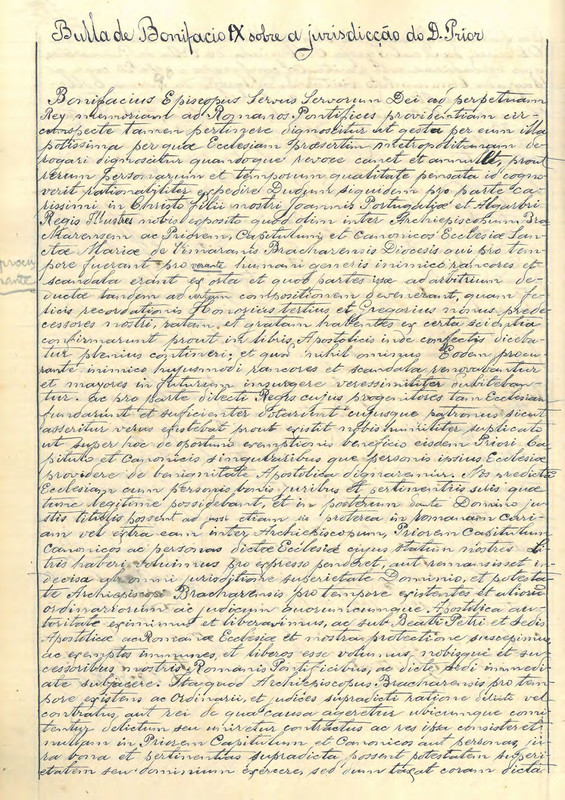 Bulla de Bonifacio IX sobre a jurisdicção do D. Prior
Bonifacius Episcopus Servus Servorum Dei ad perpetuam
Rey memoriam ad Romanos Pontifices providentiam cir-
conspecte tamen pertingere dignoscitur ut gesta per eum illa
potissima per quæ Ecclesiam præsertim metropolitanam de-
rogari dignoscitur quandoque revoce canet et annullet, prout
rerum personarum et temporum qualitate pensata id cogno
verit rationabiliter expedire Dudum siquidem pro parte Ca-
rissimi in Christo filii nostri Joannis Portugaliæ et Algarbii
Regis Illustres nobis exposito quod olim inter Archiepiscopum Bra
Marensem ac Priorem, Capitulum, et Canonicos Ecclesiæ San-
ctæ Mariæ de Vimaranis Bracharensis Diocesis qui pro tem-
pore fuerant, pro curante humani generis inimico rancores et
scandala erant ex orta et quod partes ipsæ ad arbitrium de-
ductæ tandem ad certam compositionem devenerant, quam fe-
licis recordationis Honorius tertius et Gregorius nonus prede-
cessores nostri, ratam et gratam habentes ex certa scientia
confirmarunt prout in libris Apostolicis inde confectis diceba-
tur plenius contineri; et quod nihil ominus Eodem procu-
rante inimico hujusmodi rancores et scandala renovabantur
et mayores in futurum insurgere veressimiliter dubiteban-
tur. Ac pro parte dilecti Regis cujus progenitores tam Ecclesiam
fundarunt et suficienter dotarunt cujusque patronus sicut
asseritur verus existebat prout existit nobis humiliter suplicato
ut super hoc de oportuno exemptionis beneficio eisdem Priori Ca-
pitulo et Canonicis singularibus que personis ipsius Ecclesiæ
providere de benignitate Apostolica dignaremur. Nos predictã
Ecclesiam cum personis bonis juribus et pertinentiis suis quæ
tunc legitime possidebant, et in posterum dante Domino ju-
stis titulis possent ad etiam si preterea in romanam curi-
am vel extra eam inter Archiepiscopum, Priorem Capitulum
Canonicos ac personas dictæ Ecclesiæ cujus statum nostris li-
tris haberi voluimus pro expresso penderet, aut remansisset in-
decisa ab omni jurisditione superietate Dominio, et potesta-
te Archiepiscopi Bracharensis pro tempore existentes et aliorũ
ordinariorum ac judicum quorumcumque Apostilica auc-
toritate eximimus et liberavimus, ac sub Beatti Petri et Sedis
Apostolicæ ac Romanæ Ecclesiæ et nostra protectione suscepimus
ac exemptos immunes, et liberos esse volumus, nobisque et suc-
cessoribus nostris Romanis Pontificibus, ac dictæ Sedi immedi-
ate subjacere. Itaquod Archiepiscopus Bracharensis pro tem-
pore existens ac Ordinarii, et judices supradicti ratione delicti vel
contratus, aut rei de qua causa ageretur ubicumque comi-
tentur delictum seu iniretur contractus ac res ipsa consisteret
nullam in Priorem Capitulum et Canonicos aut personas, ju-
ra bona et pertinentias supradicta possent potestatem superi-
etatem seu dominium exercere, sed dum taxat coram dicta